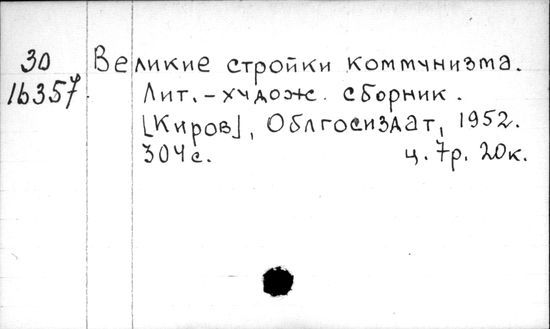 30 Великие стройки коммунизма.
16357. Лит.-худож. сборник.
[Киров], Облгосиздат, 1952.
304 с. ц. 7р. 20к.